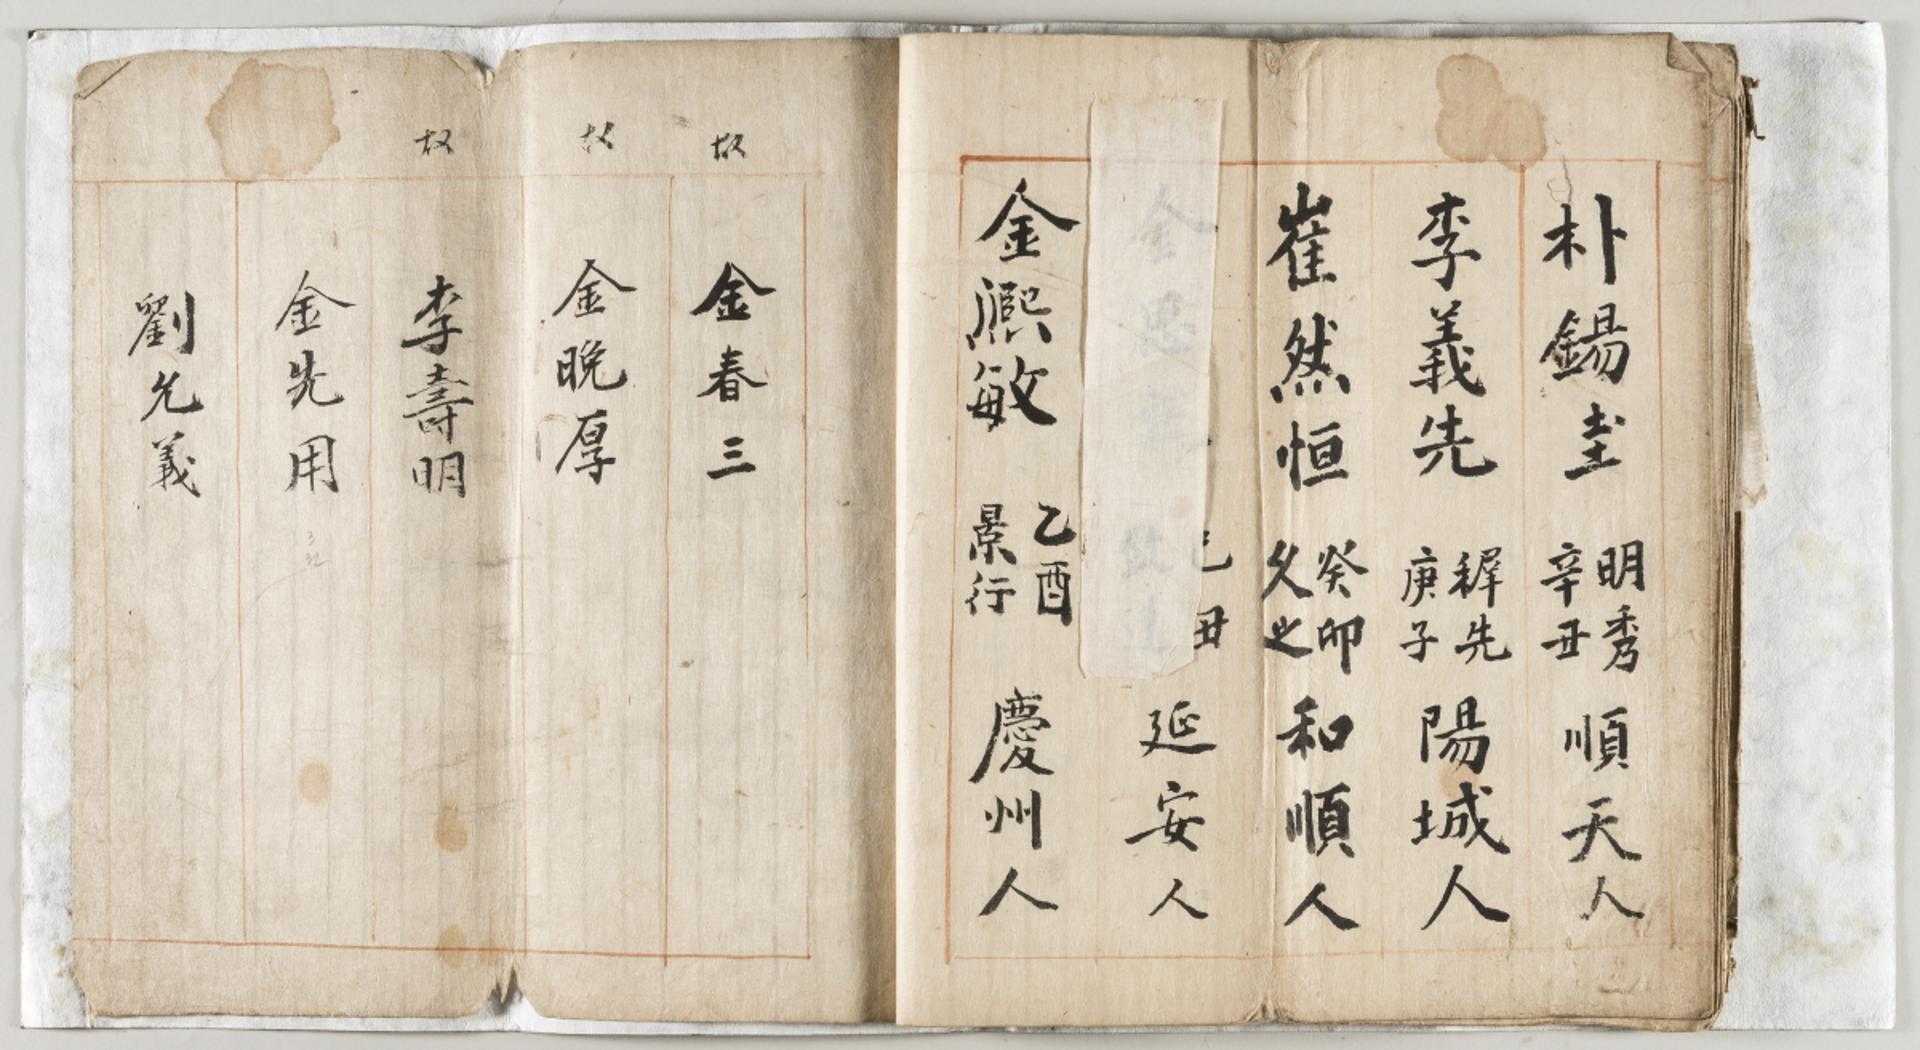 朴錫圭 明秀 辛丑 順天人
李義先 穉先 庚子 陽城人
崔然恒 癸卯 久之 和順人
金思 丑 延安人
金熈敏 乙酉 景行 慶州人
故 金春三
故 金晩厚
故 李壽明
金先用
劉允義